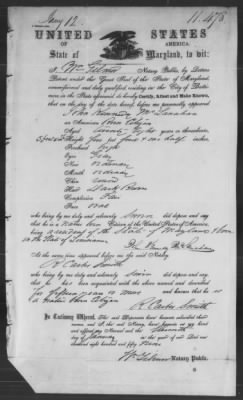 Jany 12
11.478
UNITED STATES
OF AMERICA
State of Maryland, to wit:
I Wm Gibson Notary Public, by Letters
Patent under the Great Seal of the State of Maryland
commissioned and duly qualified residing in the City of Balti-
more, in the State aforesaid do hereby Certify, Attest and Make Known,
that on the day of the date hereof, before me personally appeared
John
a American Born Citizen
Aged Twenty Eight years or thereabouts,
Height four feet
Forehead high
Eyes Gray
Nose ordinary
Mouth ordinary
Chin round
Hair Dark Brown
Complexion Fair
Face oval
who being by me duly and solemnly Sworn did depose and say
that he is a native born Citizen of the United States of America
being a resident of the State of Maryland & born
in the State of Louisiana
At the same time appeared before me the said Notary
R Carter Smith
who being by me duly and solemnly sworn did depose and say
that he has been acquainted with the above named and described
for fifteen years or more and knows that he is
a Native Born Citizen
R Carter Smith
In Testimony Whereof, The said Deponents have hereunto subscribed their
names, and I the said Notary have hereunto set my hand
and affixed my Notarial seal the
day of January in the year of our Lord one
thousand eight hundred and fifty
Wm Gibson Notary Public.